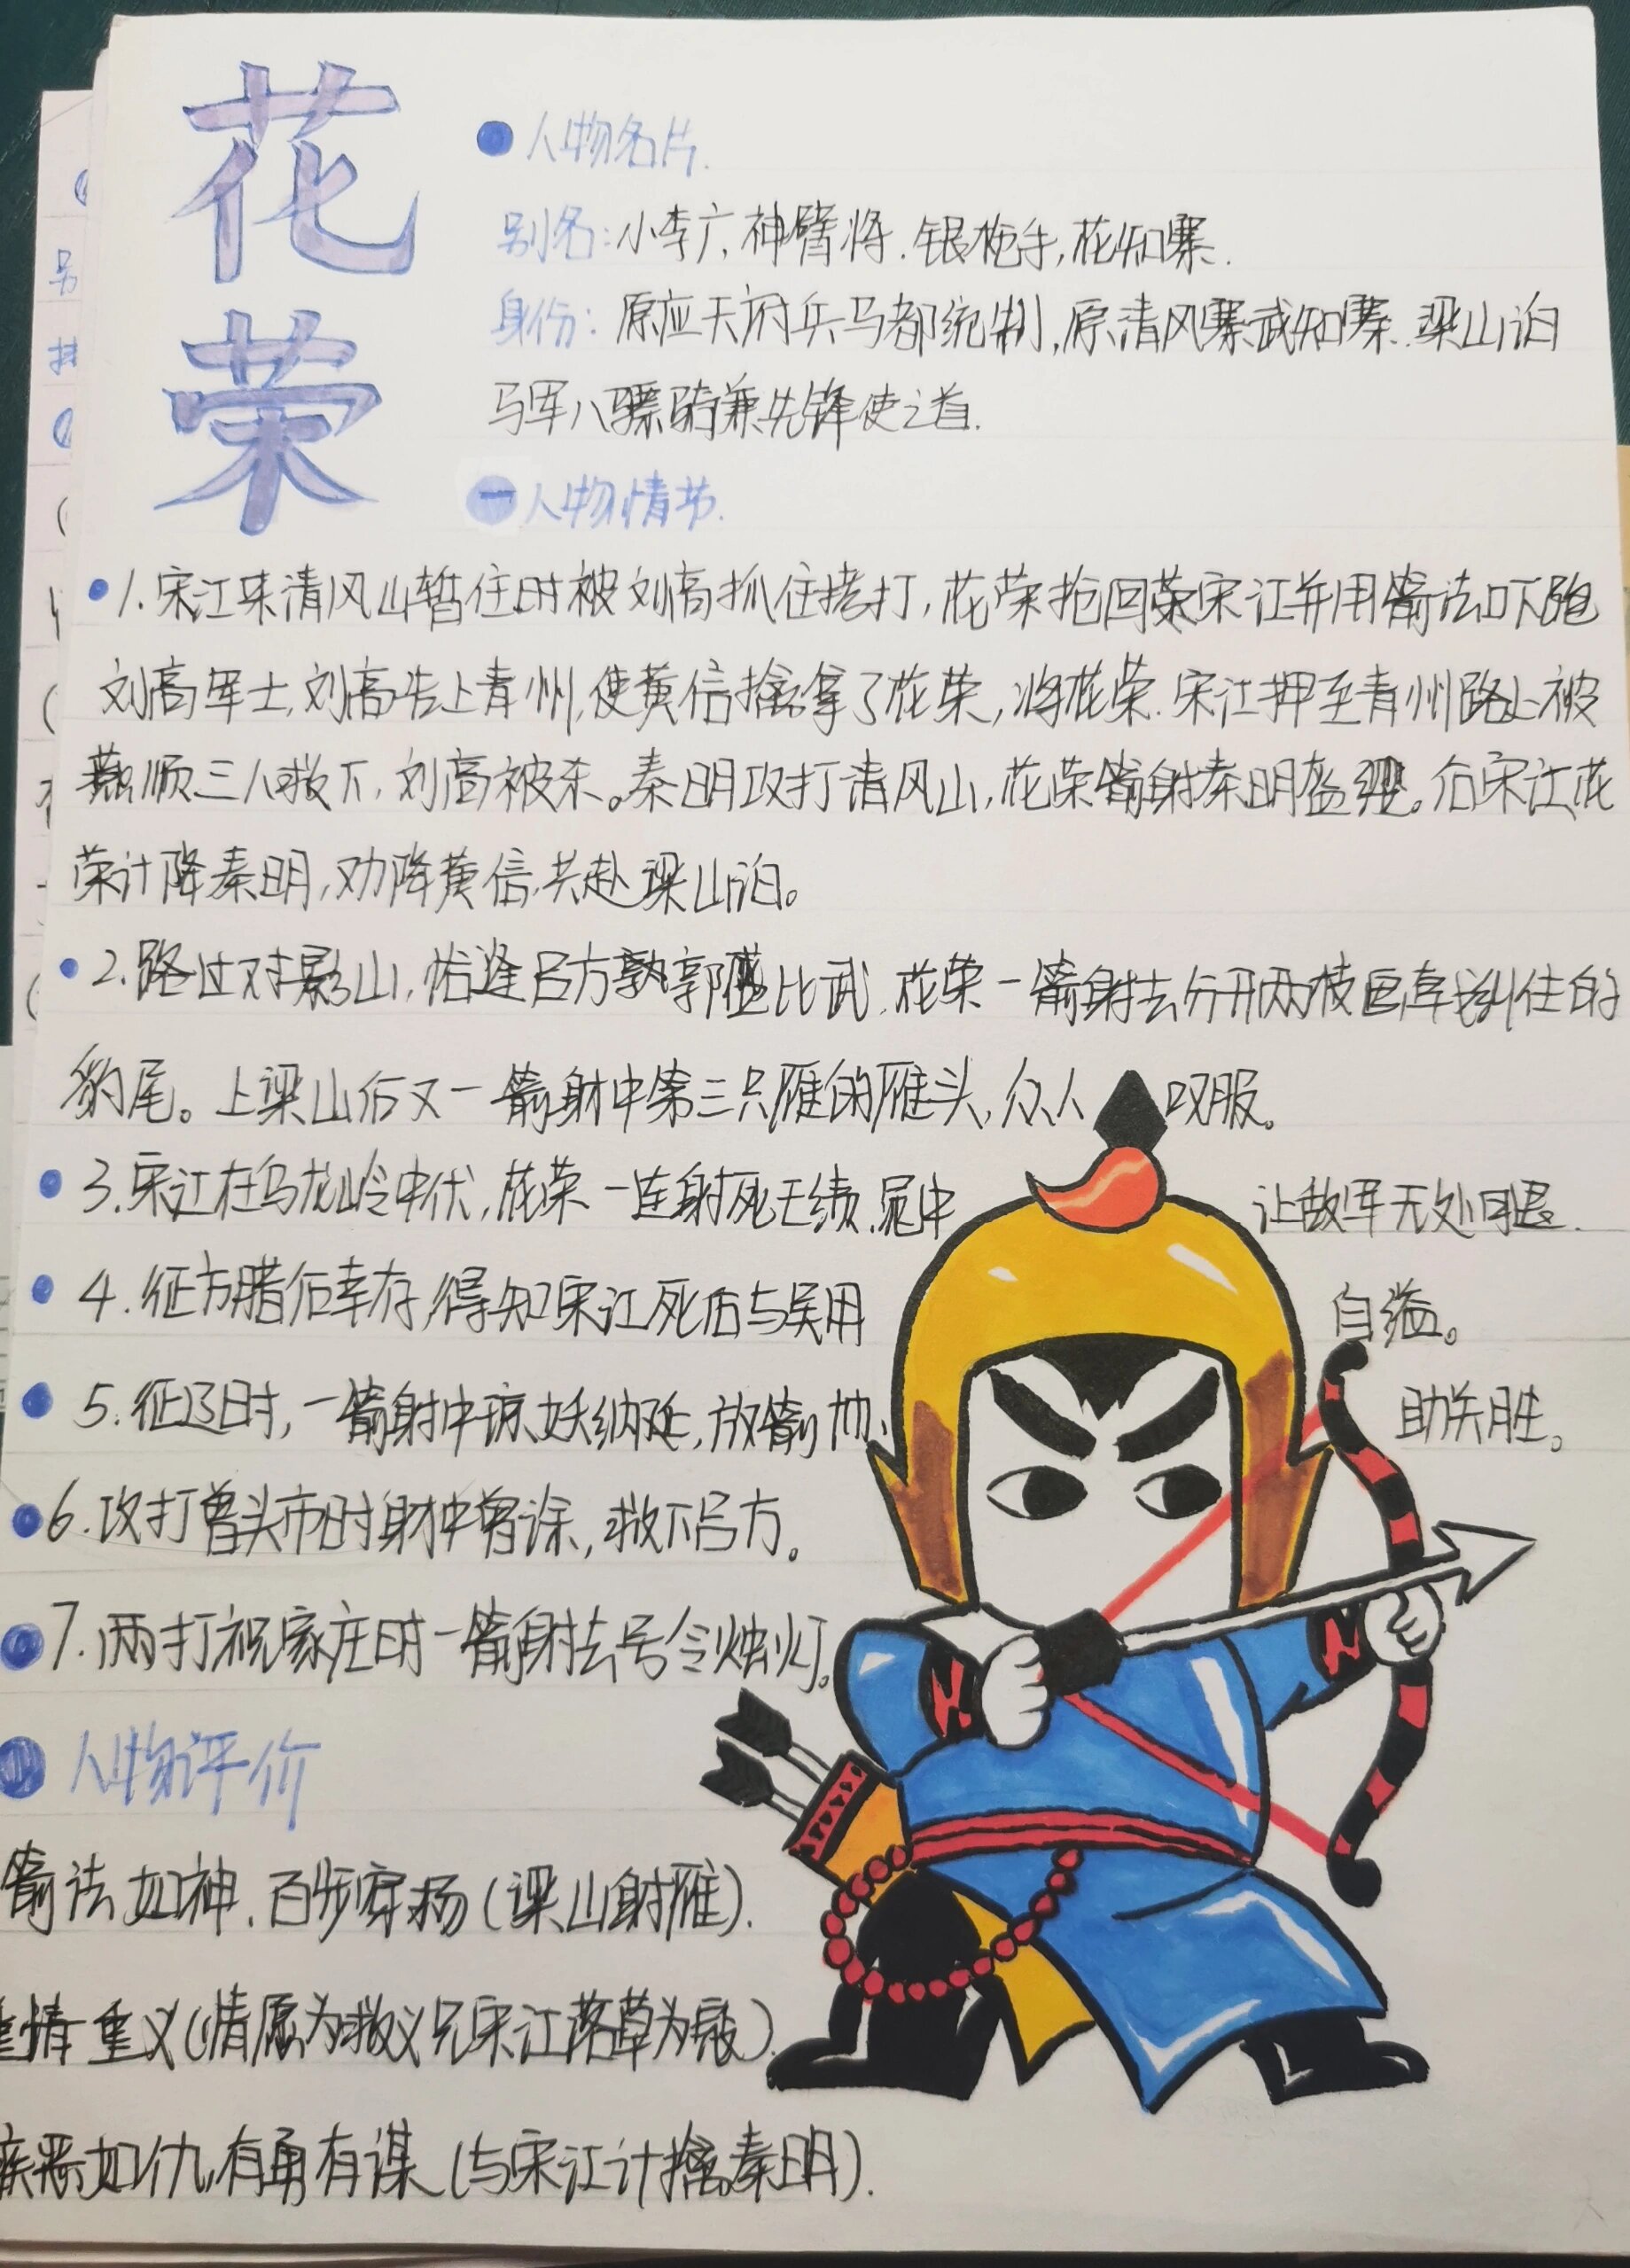 花
荣
人物名片.
别名:小李广,神臂将.银枪手,花知寨.
身份:原应天府兵马都统制,原清风寨武知寨.梁山泊
马军八骠骑兼先锋使之首.
一 人物情节.
1.宋江来清风山暂住时被刘高抓住拷打,花荣抢回宋江并用箭法吓跑
刘高军士,刘高告上青州,使黄信擒拿了花荣,将花荣.宋江押至青州路上被
燕顺三人救下,刘高被杀。秦明攻打清风山,花荣箭射秦明盔缨。后宋江花
荣计降秦明,劝降黄信,共赴梁山泊。
2.路过对影山,恰逢吕方郭盛比武,花荣一箭射去分开两枝画戟纠住的
豹尾。上梁山后又一箭射中第三只雁的雁头,众人叹服。
3.宋江在乌龙岭中伏,花荣一连射死王绩.晁中 让敌军无处可退.
4.征方腊后幸存,得知宋江死后与吴用 自缢。
5.征辽时,一箭射中琼妖纳延,放箭 助关胜。
6.攻打曾头市时射中曾涂,救下吕方。
7.两打祝家庄时一箭射去号令烛灯。
人物评价
箭法如神.百步穿杨(梁山射雁).
重情重义(情愿为救义兄宋江落草为寇).
疾恶如仇,有勇有谋(与宋江计擒秦明).